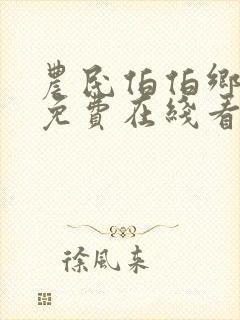 農民伯伯鄉
免費在綫看
徐風來